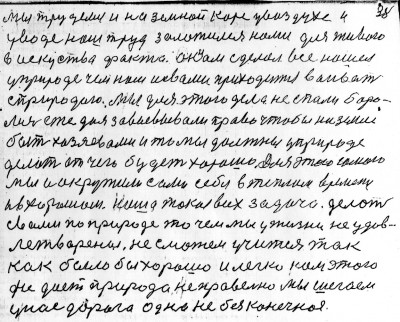 38
мы трудели и на земной коре увоздухе и
уводе наш труд заложился нами для живого
в искуства факта. он сам сделал все нашел
уприроде чем нам и свами приходится
сприродою. мы для этого дела не спали боро-
лись уже для завоевывали право чтобы на земле
быть хозяевами и то мы должны уприроде
делать от чего будет хорошо. Для этого самого
мы и окружили сами себя в теплом времени
и в хорошом. наша такая вих задача. делать
свами по природе то чем мы ужизни не удов-
летворены. не сможем учится так
как было бы хорошо и легко нам этого
не дает природа неправелно мы шагаем
у нас дорога одна не безконечная.